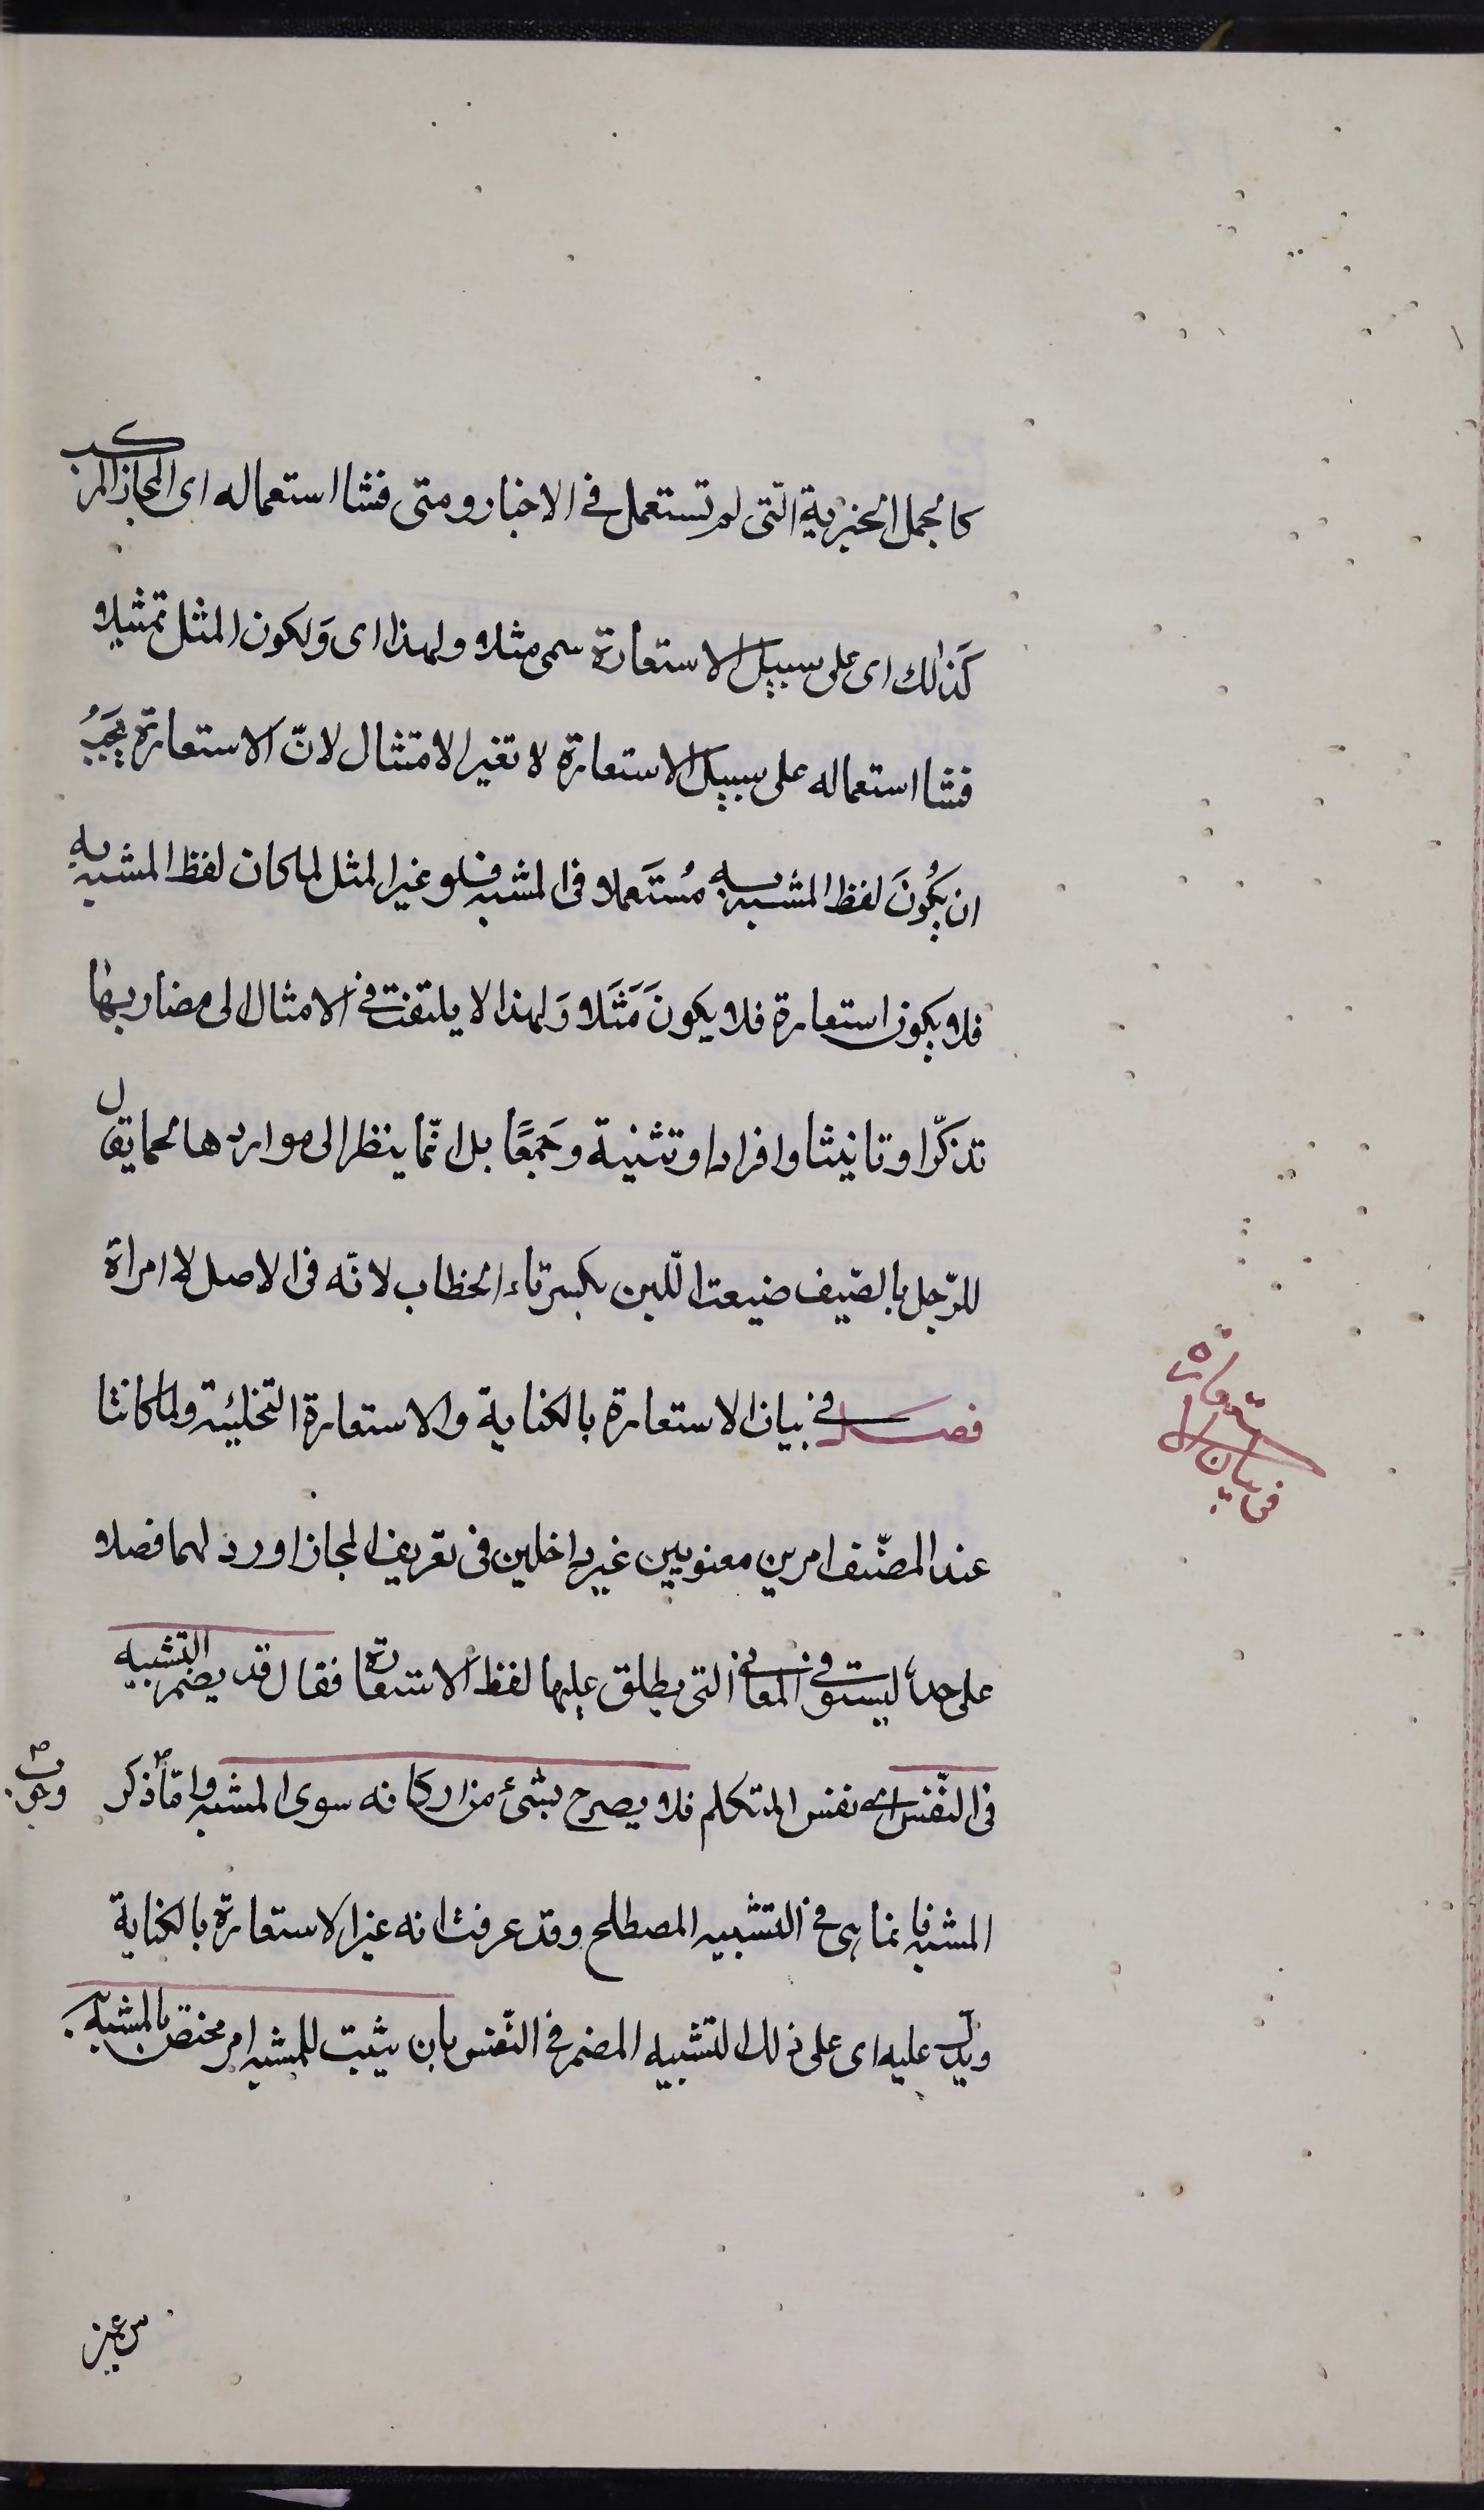 كالجمل الخبرية التى لم تستعمل فى الاخبار ومتى فشا استعماله اى المجاز المركب
كذلك اى على سبيل الاستعارة سمى مثلا ولهذا اى وَلكون المثل تمثيلا
فشا استعماله على سبيل الاستعارة لا تغير الامتثال لانّ الاستعارة يجبُ
ان يكُونَ لفظ المشبه به مُستَعملا فى المشبه فلو غير المثل لما كان لفظ المشبه به
فلا يكون استعارة فلا يكونَ مَثَلا وَلهذا لا يلتفت فى الامثال الى مضاربها
تذكّرا وتانيثا وافرادا وتثنية وجَمعًا بل انّما ينظر الى مواردها كما يقال
للرّجل بالصّيف ضيعت اللّبن بكسر تاء الخطاب لانّه فى الاصل لامراة
فصل فى بيان الاستعارة بالكناية والاستعارة التخليئة ولما كانتا
فى بيان الاستعارة
عند المصنّف امرين معنويين غير داخلين فى تعريف المجاز اورد لهما فصلا
على حدة ليستوفى المعانى التى يطلق عليها لفظ الاستعارة فقال قد يضمر التشبيه
فى النّفس اى نفس المتكلم فلا يصرح بشئ من اركانه سوى المشبه وامّا ذكر
المشبه فانما هى فى التشبيه المصطلح وقد عرفت انه غير الاستعارة بالكناية
ويدل عليه اى على ذلك التشبيه المضمر فى النّفس بان يثبت للمشبه امر مختص بالمشبه به
من غير